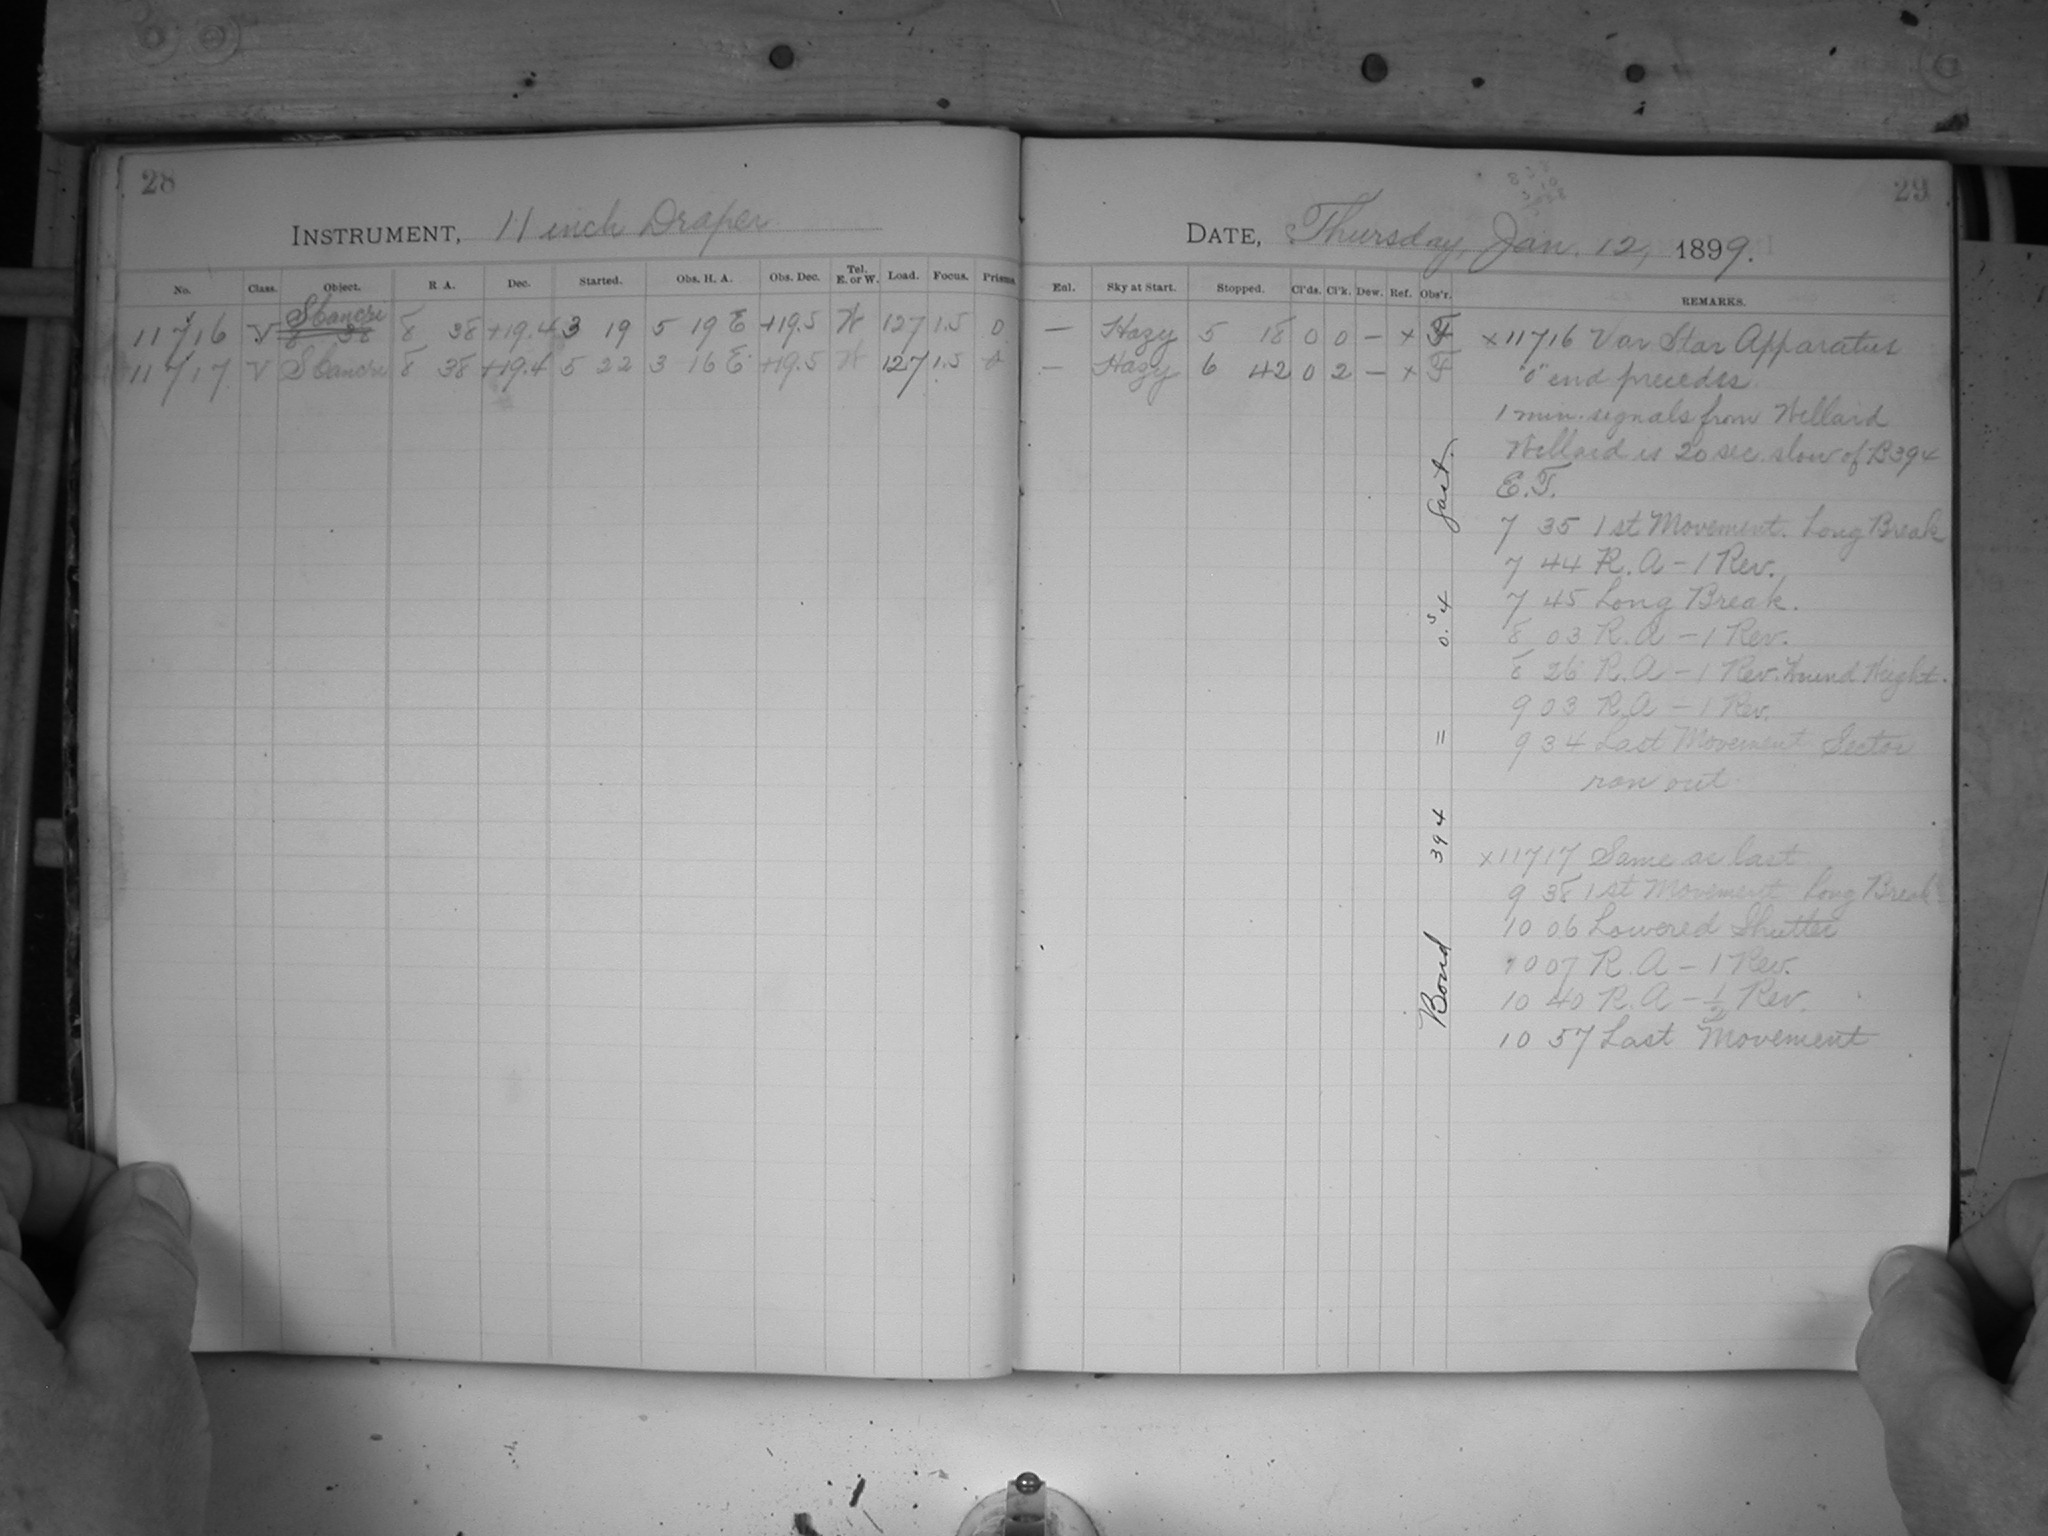 28
INSTRUMENT, 11 inch Draper
No. Class. Object. R A. Dec. Started. Obs. H. A. Obs. Dec. Tel. E. or W. Load. Focus. Prisms
11716 V 8 38 S Cancri 8 38 +19.4 3 19 5 19 E +19.5 W 127 1.5 0
11717 V S Cancri 8 38 +19.4 5 22 3 16 E +19.5 W 127 1.5 0
29
DATE, Thursday, Jan. 12, 1899.
Enl. Sky at Start. Stopped. Cl'ds. Cl'k. Dew. Ref. Obs'r. REMARKS.
— Hazy 5 18 0 0 — x F
— Hazy 6 42 0 2 — x F
x11716 Var Star Apparatus
"0" end precedes
1 min. signals from Willard
Willard is 20 sec. slow of B394
E.T.
7 35 1st Movement. Long Break
7 44 R.A – 1 Rev.,
7 45 Long Break.
8 03 R.A – 1 Rev.
8 26 R.A – 1 Rev. Wound Weight.
9 03 R.A – 1 Rev.
9 34 Last Movement Sector
ran out
x11717 Same as last
9 38 1st Movement Long Break
10 06 Lowered Shutter
10 07 R.A – 1 Rev.
10 40 R.A – 1/2 Rev.
10 57 Last Movement
Bond 394 = 0.s4 fast.